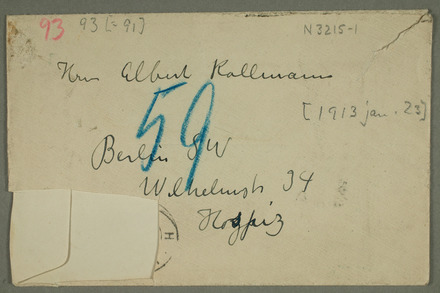 93 93 [= 91] N3215-1
Hrn Albert Kollmann
59
[1913 jan. 23]
Berlin SW
Wilhelmstr 34
Hospiz
H